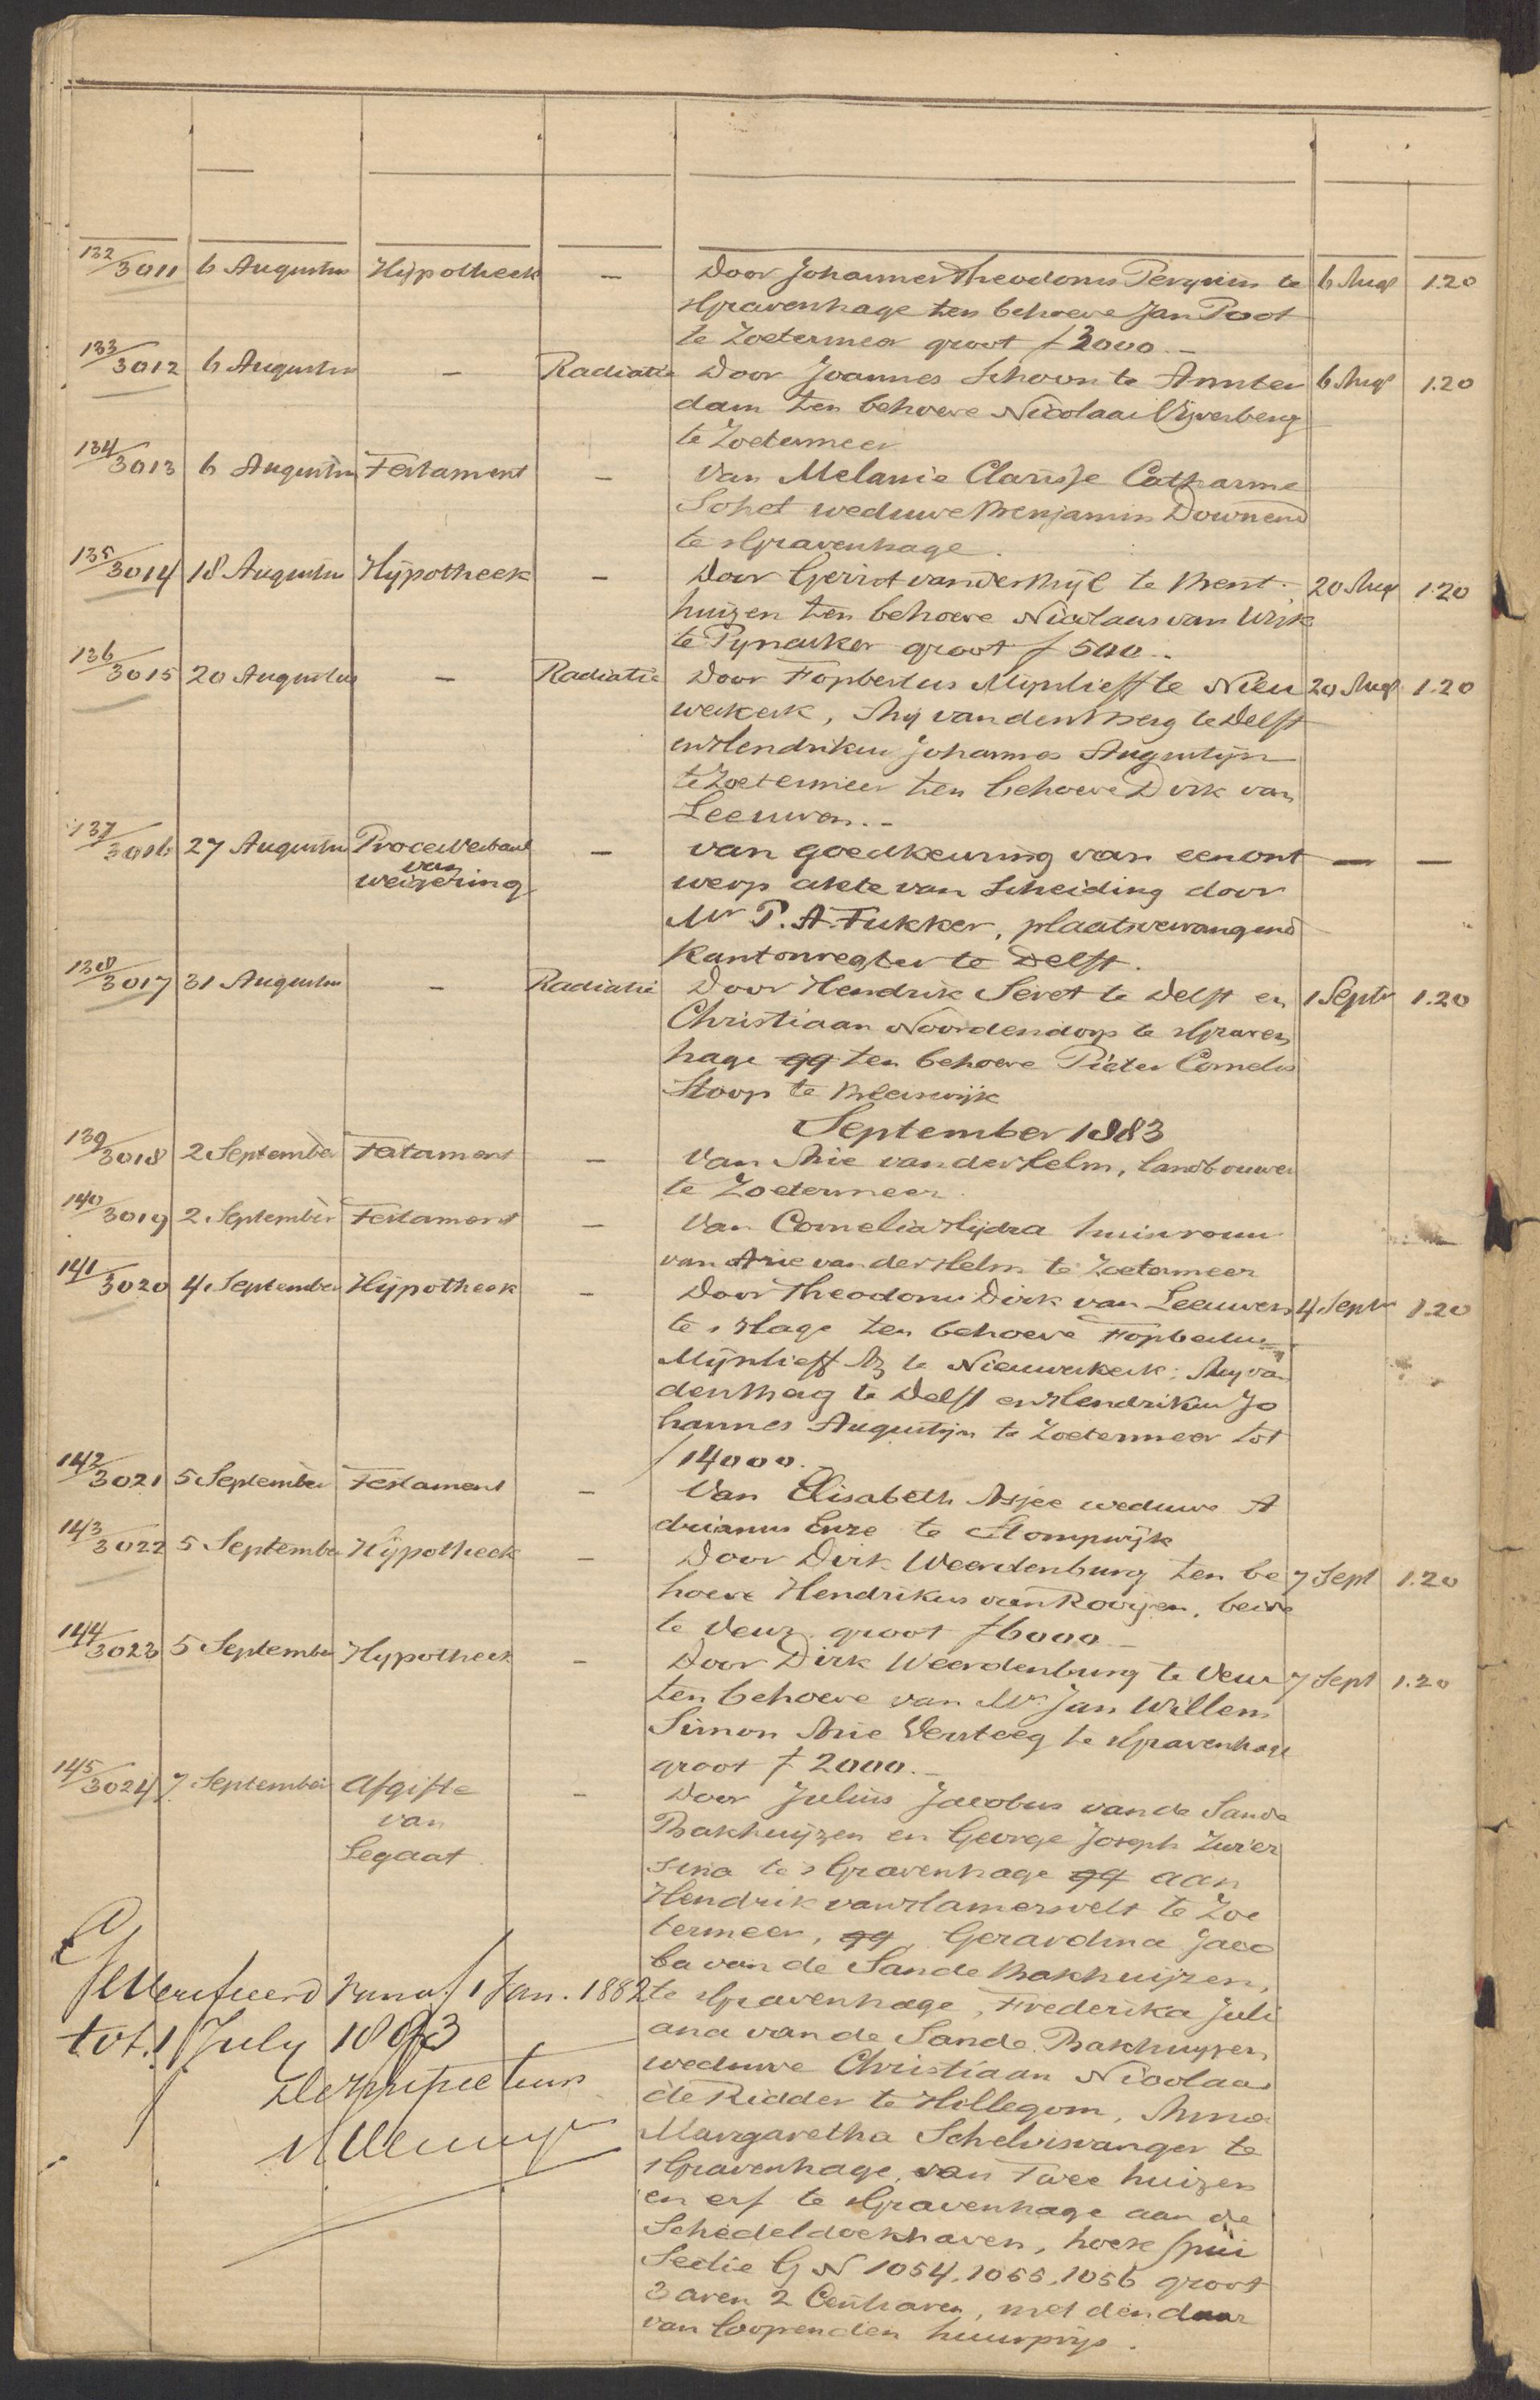 132/3011 6 Augustus Hypotheek — Door Johannes Theodorus Perquin te 6 Aug 1.20
sGravenhage ten behoeve Jan Poot
te Zoetermeer groot f 3000.—
133/3012 6 Augustus — Radiatie Door Joannes Schoon te Amster 6 Aug 1.20
dam ten behoeve Nicolaas Vijverberg
te Zoetermeer
134/3013 6 Augustus Testament — Van Melanie Clarisse Catharine
Sohet weduwe Benjamin Downend
te sGravenhage.
135/3014 18 Augustus Hypotheek — Door Gerrit van der Mijl te Bent 20 Aug 1.20
huizen ten behoeve Nicolaas van Wijk
te Pynacker groot f 500.-
136/3015 20 Augustus — Radiatie Door Fopbertus Mijnlieff te Nieu 20 Aug 1.20
werkerk, Ary van den Berg te Delft
en Hendrikus Johannes Augustijn
te Zoetermeer ten behoeve Dirk van
Leeuwen.-
137/3016 27 Augustus Proces Verbaal — van goedkeuring van een ont — —
van
weigering werp akte van Scheiding door
Mr P. A. Fukker, plaatsvervangend
Kantonregter te Delft.
138/3017 31 Augustus — Radiatie Door Hendrik Seret te Delft en 1 Septr 1.20
Christiaan Noordendorp te sGraven
hage qq ten behoeve Pieter Cornelis
Stoop te Bleiswijk
September 1883
139/3018 2 September Testament — Van Arie van der Helm, landbouwer
te Zoetermeer.
140/3019 2 September Testament — Van Cornelia Hijdra huisvrouw
van Arie van der Helm te Zoetermeer
141/3020 4 September Hypotheek — Door Theodorus Dirk van Leeuwen 4 Septr 1.20
te sHage ten behoeve Fopbertus
Mijnlieff Az te Nieuwerkerk; Ary van
den Berg te Delft en Hendrikus Jo
hannes Augustijn te Zoetermeer tot
f 14000.-
142/3021 5 September Testament — Van Elisabeth Asjee weduwe A
drianus Enze te Stompwijk
143/3022 5 September Hypotheek — Door Dirk Weerdenburg ten be 7 Sept 1.20
hoeve Hendrikus van Rooijen, beide
te Veur groot f 6000.—
144/3023 5 September Hypotheek — Door Dirk Weerdenburg te Veur 7 Sept 1.20
ten behoeve van Mr Jan Willem
Simon Arie Versteeg te sGravenhage
groot f 2000.—
145/3024 7 September Afgifte — Door Julius Jacobus van de Sande
van Bakhuijzen en George Joseph Zurer
Legaat sena te sGravenhage qq aan
Hendrik van Hamersvelt te Zoe
termeer, qq, Gerardina Jaco
ba van de Sande Bakhuijzen,
Geverifieerd vanaf 1 Jan. 1882 te sGravenhage, Frederika Juli
tot 1 July 1883 ana van de Sande Bakhuyzen
weduwe Christiaan Nicolaas
De Inspecteur
de Ridder te Hillegom, Anna
Margaretha Schelvisvanger te
sGravenhage, van Twee huizen
en erf te sGravenhage aan de
Schedeldoekhaven, hoek Spui
Sectie G N 1054, 1055, 1056 groot
3 aren 2 Centiaren, met den daar
van loopenden huurprijs.